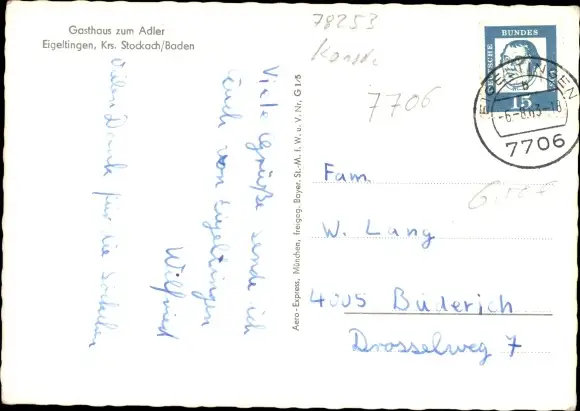 Gasthaus zum Adler
Eigeltingen, Krs. Stockach/Baden
Viele Grüße sende ich
Euch von Eigeltingen
Wilfried
Vielen Dank für die Söckchen
Aero-Express, München, freigeg. Bayer. St.-M. f. W. u. V. Nr. G 1/5
78253
Konst
7706
DEUTSCHE BUNDESPOST
15
EIGELTINGEN
B
-6.-8.63-18
7706
Fam.
W. Lang
4005 Büderich
Drosselweg 7